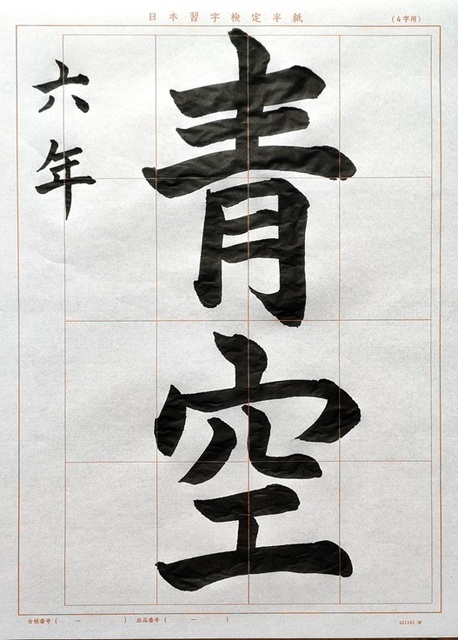 日本習字検定半紙
(4字用)
青空
六年
台帳番号 ( ー )
出品番号 ( ー )